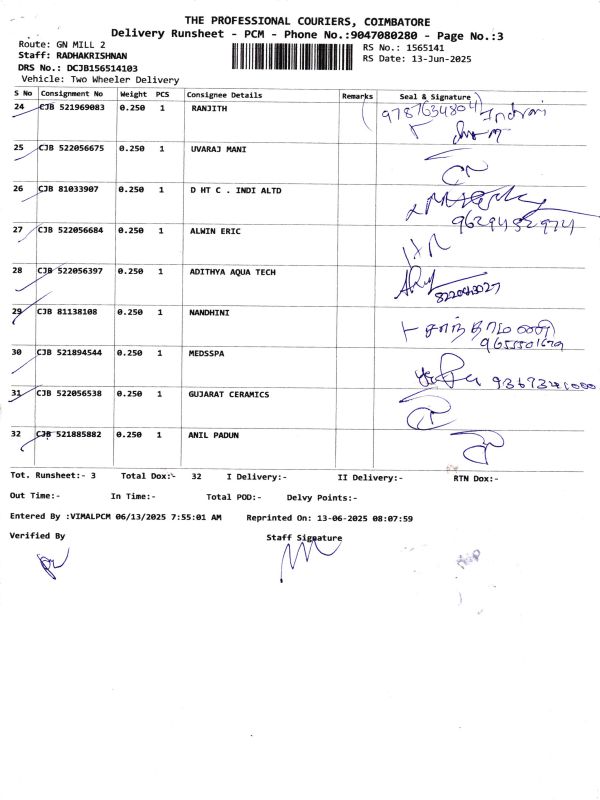 THE PROFESSIONAL COURIERS, COIMBATORE
Delivery Runsheet - PCM - Phone No.:9047080280 - Page No.:3
Route: GN MILL 2
RS No.: 1565141
Staff: RADHAKRISHNAN
RS Date: 13-Jun-2025
DRS No.: DCJB156514103
Vehicle: Two Wheeler Delivery
S No Consignment No Weight PCS Consignee Details Remarks Seal & Signature
24 CJB 521969083 0.250 1 RANJITH 9787634804 Indrani
25 CJB 522056675 0.250 1 UVARAJ MANI
26 CJB 81033907 0.250 1 D HT C . INDI ALTD
9629452974
27 CJB 522056684 0.250 1 ALWIN ERIC
28 CJB 522056397 0.250 1 ADITHYA AQUA TECH
29 CJB 81138108 0.250 1 NANDHINI
சாந்தாமணி
30 CJB 521894544 0.250 1 MEDSSPA
9367341000
31 CJB 522056538 0.250 1 GUJARAT CERAMICS
32 CJB 521885882 0.250 1 ANIL PADUN
Tot. Runsheet:- 3 Total Dox:- 32 I Delivery:- II Delivery:- RTN Dox:-
Out Time:- In Time:- Total POD:- Delvy Points:-
Entered By :VIMALPCM 06/13/2025 7:55:01 AM Reprinted On: 13-06-2025 08:07:59
Verified By Staff Signature